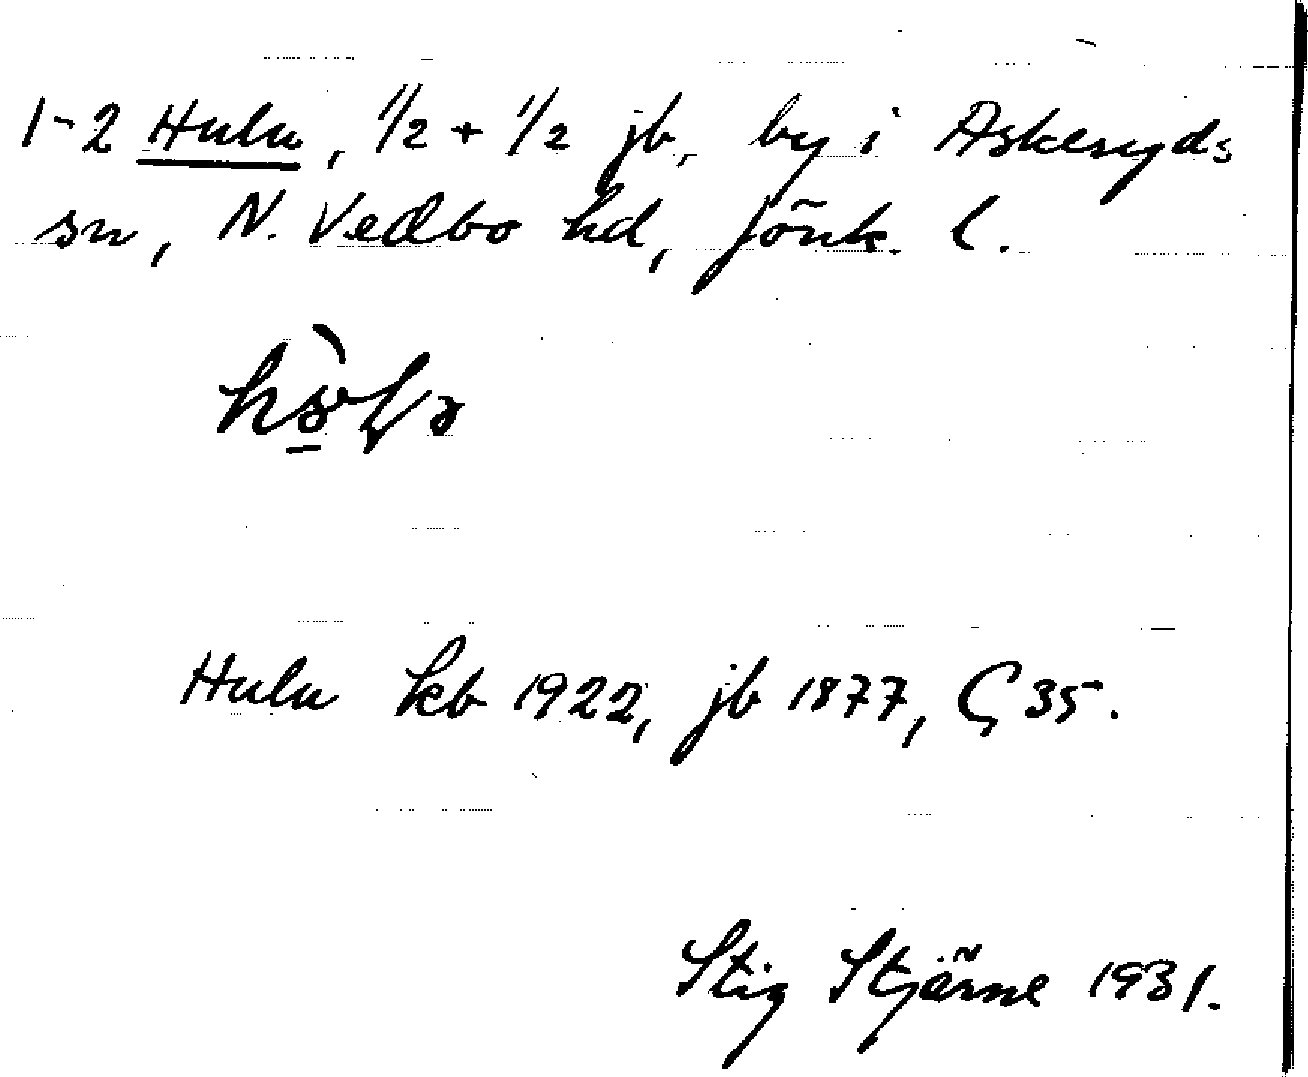 1-2 Hulu, 1/2 + 1/2 jb, by i Askeryds
sn, N. Vedbo hd, Jönk. l.
Hulu kb 1922, jb 1877, G 35.
Stig Stjärne 1931.